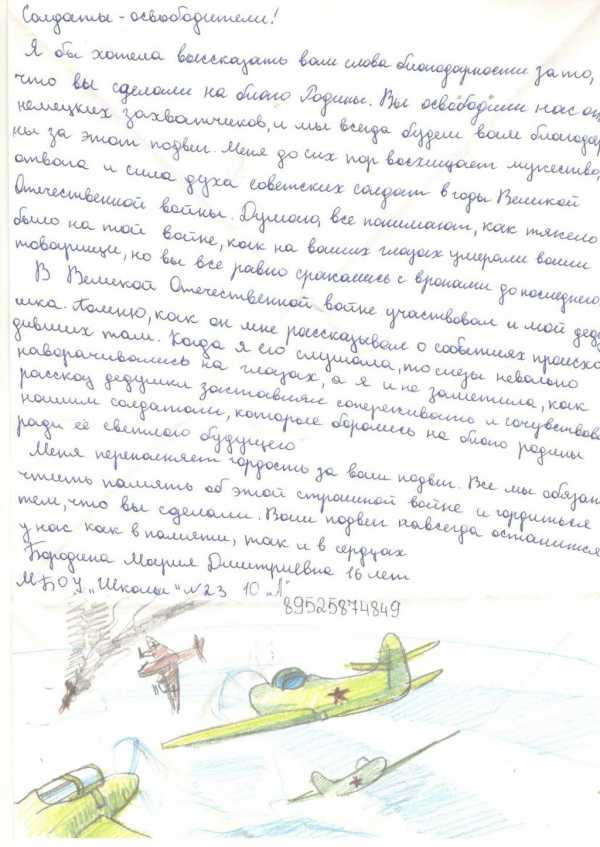 Солдаты - освободители!
Я бы хотела высказать вам слова благодарности за то,
что вы сделали на благо Родины. Вы освободили нас от
немецких захватчиков, и мы всегда будем вам благодар
ны за этот подвиг. Меня до сих пор восхищает мужество,
отвага и сила духа советских солдат в годы Великой
Отечественной войны. Думаю, все понимают, как тяжело
было на той войне, как на ваших глазах умерали ваши
товарищи, но вы все равно сражались с врагами до последнего.
В Великой Отечественной войне участвовал и мой деду
шка. Помню, как он мне рассказывал о событиях происхо
дивших там. Когда я его слушала, то слезы невольно
наворачивались на глазах, а я и не заметила, как
рассказ дедушки заставлял сопереживать и сочувствова
нашим солдатам, которые боролись на благо родины
ради её светлого будущего
Меня переполняет гордость за ваш подвиг. Все мы обязан
чтить память об этой страшной войне и гордиться
тем, что вы сделали. Ваш подвиг навсегда останится
у нас как в памяти, так и в сердцах
Бородина Мария Дмитриевна 16 лет
МБОУ „Школы" №23 10 „А"
89525874849